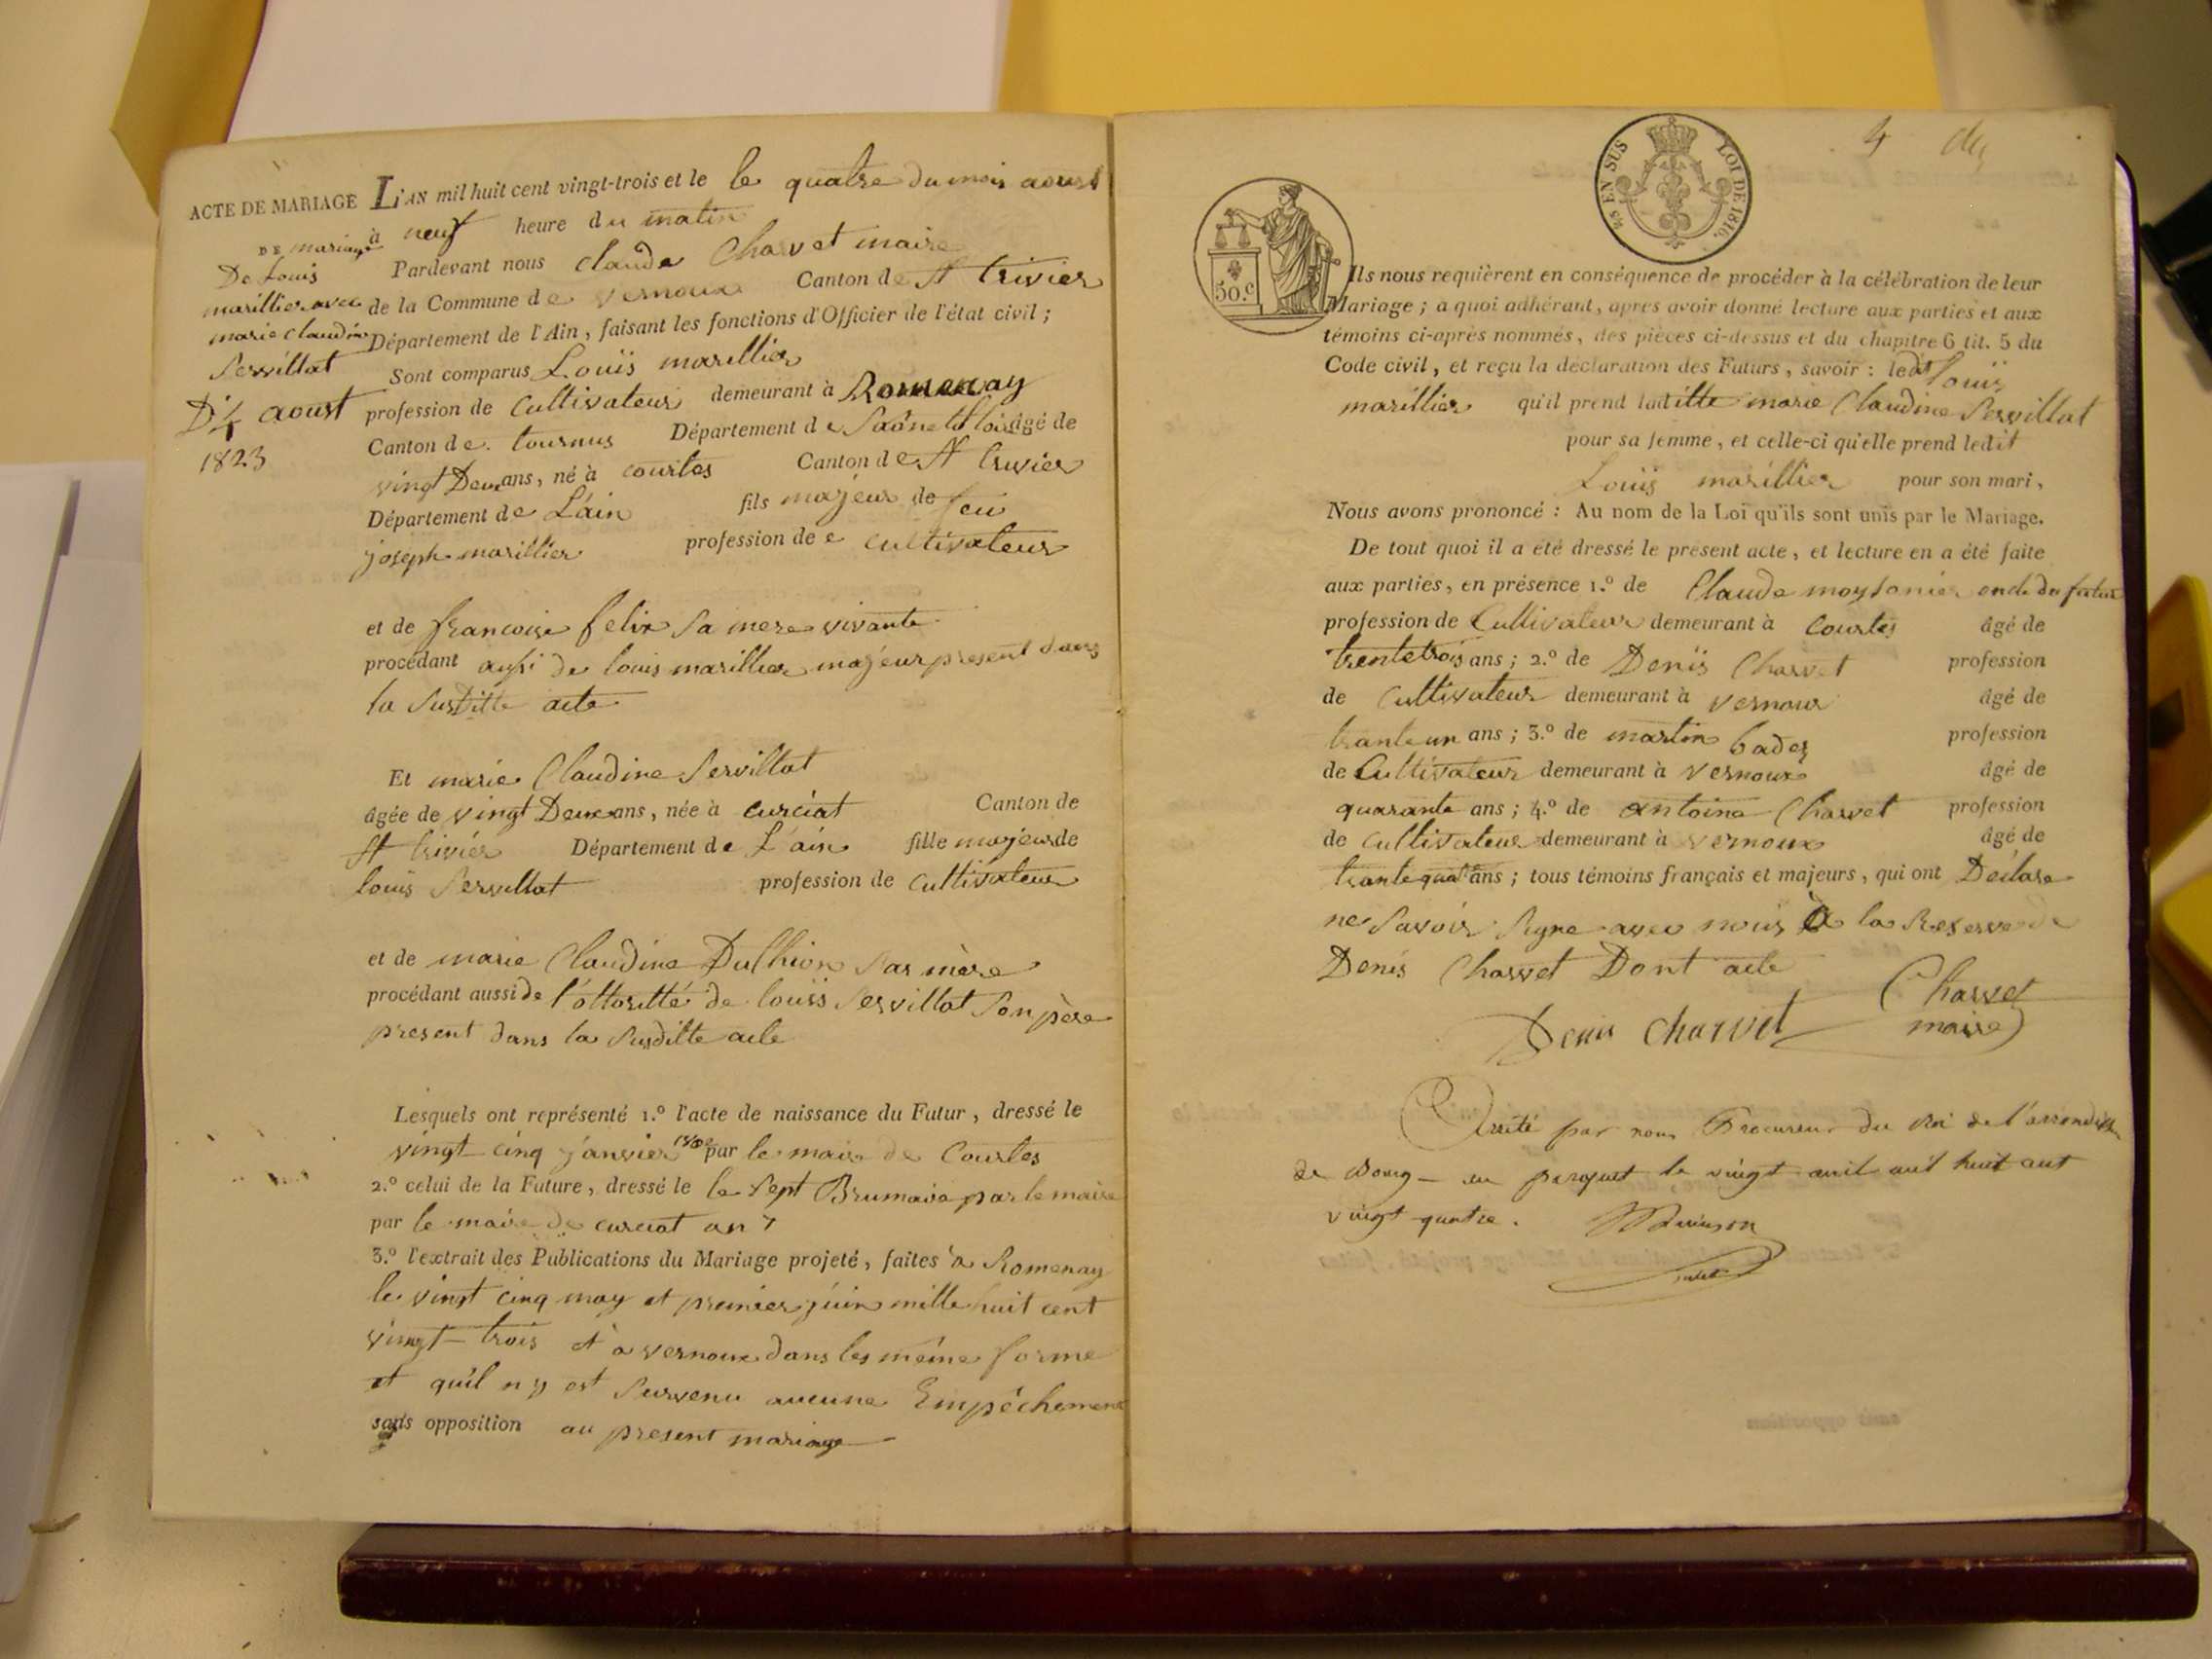 ACTE DE MARIAGE
DE mariage
De Louis
marillier avec
marie claudine
Servillat
D 4 aoust
1823
L'AN mil huit cent vingt-trois et le le quatre du mois aoust
à neuf heure du matin
Pardevant nous claude Charvet maire
de la Commune de vernoux Canton de St trivier
Département de l'Ain, faisant les fonctions d'Officier de l'état civil;
Sont comparus Louis marillier
profession de Cultivateur demeurant à Romenay
Canton de tournus Département de Saône et loire âgé de
vingt Deux ans, né à courtes Canton de St trivier
Département de L'ain fils majeur de feu
joseph marillier profession de cultivateur
et de francoise felix sa mere vivante
procédant aussi de louis marillier majeur present dans
la susditte acte
Et marie Claudine Servillat
âgée de vingt Deux ans, née à curciat Canton de
St trivier Département de L'ain fille majeur de
louis Servillat profession de cultivateur
et de marie Claudine Duthion sas mère
procédant aussi de l'ottoritté de louis Servillat son père
present dans la susditte acte
Lesquels ont représenté 1.º l'acte de naissance du Futur, dressé le
vingt cinq janvier par le maire de Courtes
2.º celui de la Future, dressé le le sept Brumaire par le maire
par le maire de curciat an 7
3.º l'extrait des Publications du Mariage projeté, faites à Romenay
le vingt cinq may et premier juin mille huit cent
vingt-trois et à vernoux dans les même forme
et qu'il n'y est survenu aucune Empêchement
sans opposition au present mariage
4
EN SUS LOI DE 1816.
50.c
Ils nous requièrent en conséquence de procéder à la célébration de leur
Mariage; a quoi adhérant, apres avoir donné lecture aux parties et aux
témoins ci-après nommés, des pièces ci-dessus et du chapitre 6 tit. 5 du
Code civil, et reçu la déclaration des Futurs, savoir: ledt Louis
marillier qu'il prend laditte marie Claudine Servillat
pour sa femme, et celle-ci qu'elle prend ledit
Louis marillier pour son mari,
Nous avons prononcé: Au nom de la Loi qu'ils sont unis par le Mariage.
De tout quoi il a été dressé le présent acte, et lecture en a été faite
aux parties, en présence 1.º de Claude moysonier oncle du futur
profession de Cultivateur demeurant à Courtes âgé de
trente trois ans; 2.º de Denis Charvet profession
de Cultivateur demeurant à vernoux âgé de
trante un ans; 3.º de martin badez profession
de Cultivateur demeurant à vernoux âgé de
quarante ans; 4.º de antoine Charvet profession
de cultivateur demeurant à vernoux âgé de
trante quatre ans; tous témoins français et majeurs, qui ont Déclare
ne savoir signe avec nous à la Reserve de
Denis Charvet Dont acte
Denis Charvet Charvet
maire
Arrêté par nous Procureur du Roi de l'arrondissem
de Bourg - en parquet le vingt avril mil huit cent
vingt quatre.